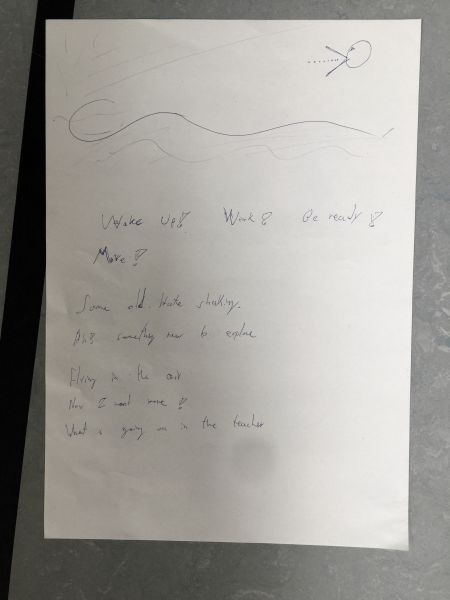 Wake Up! Work! Be ready!
Move!
Some old. Hate shaking.
Ah! something new to explore
Flying in the air
Now I want more!
What is going on in the teacher